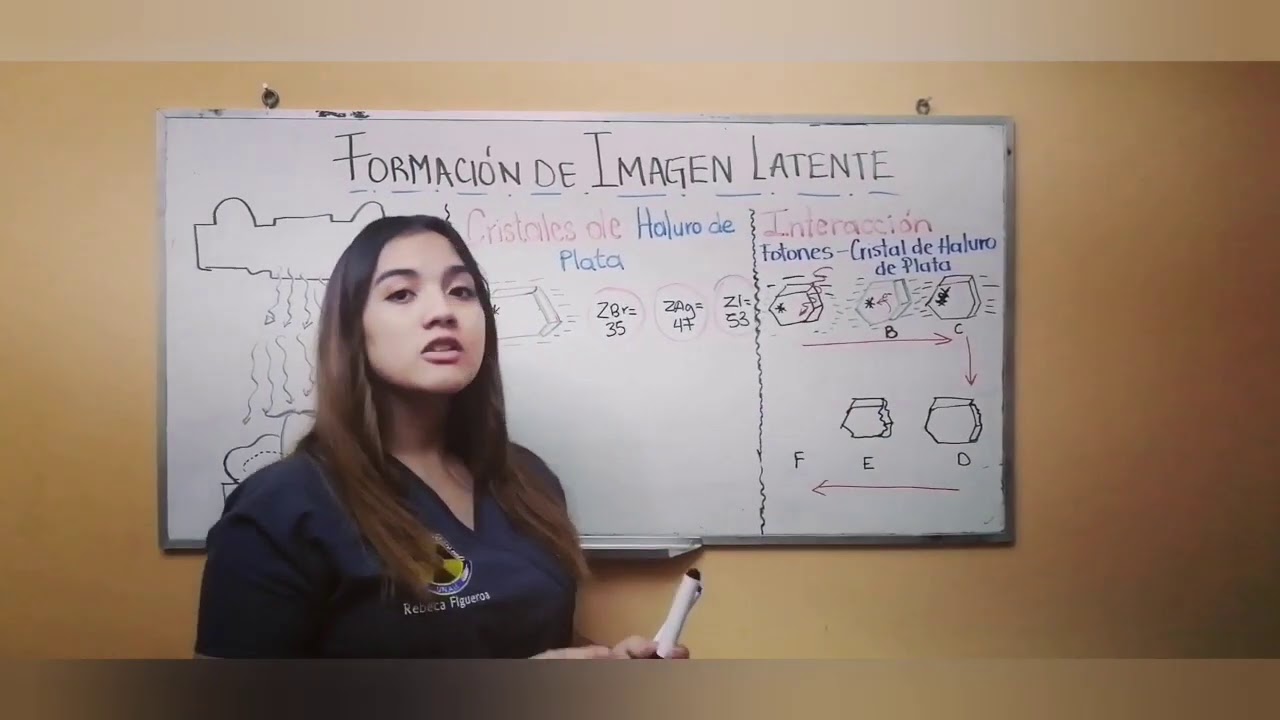 FORMACIÓN DE IMAGEN LATENTE
Cristales de Haluro de
Plata
ZBr=
35
ZAg=
47
ZI=
53
Interacción
Fotones-Cristal de Haluro
de Plata
B
C
F
E
D
Rebeca Figueroa